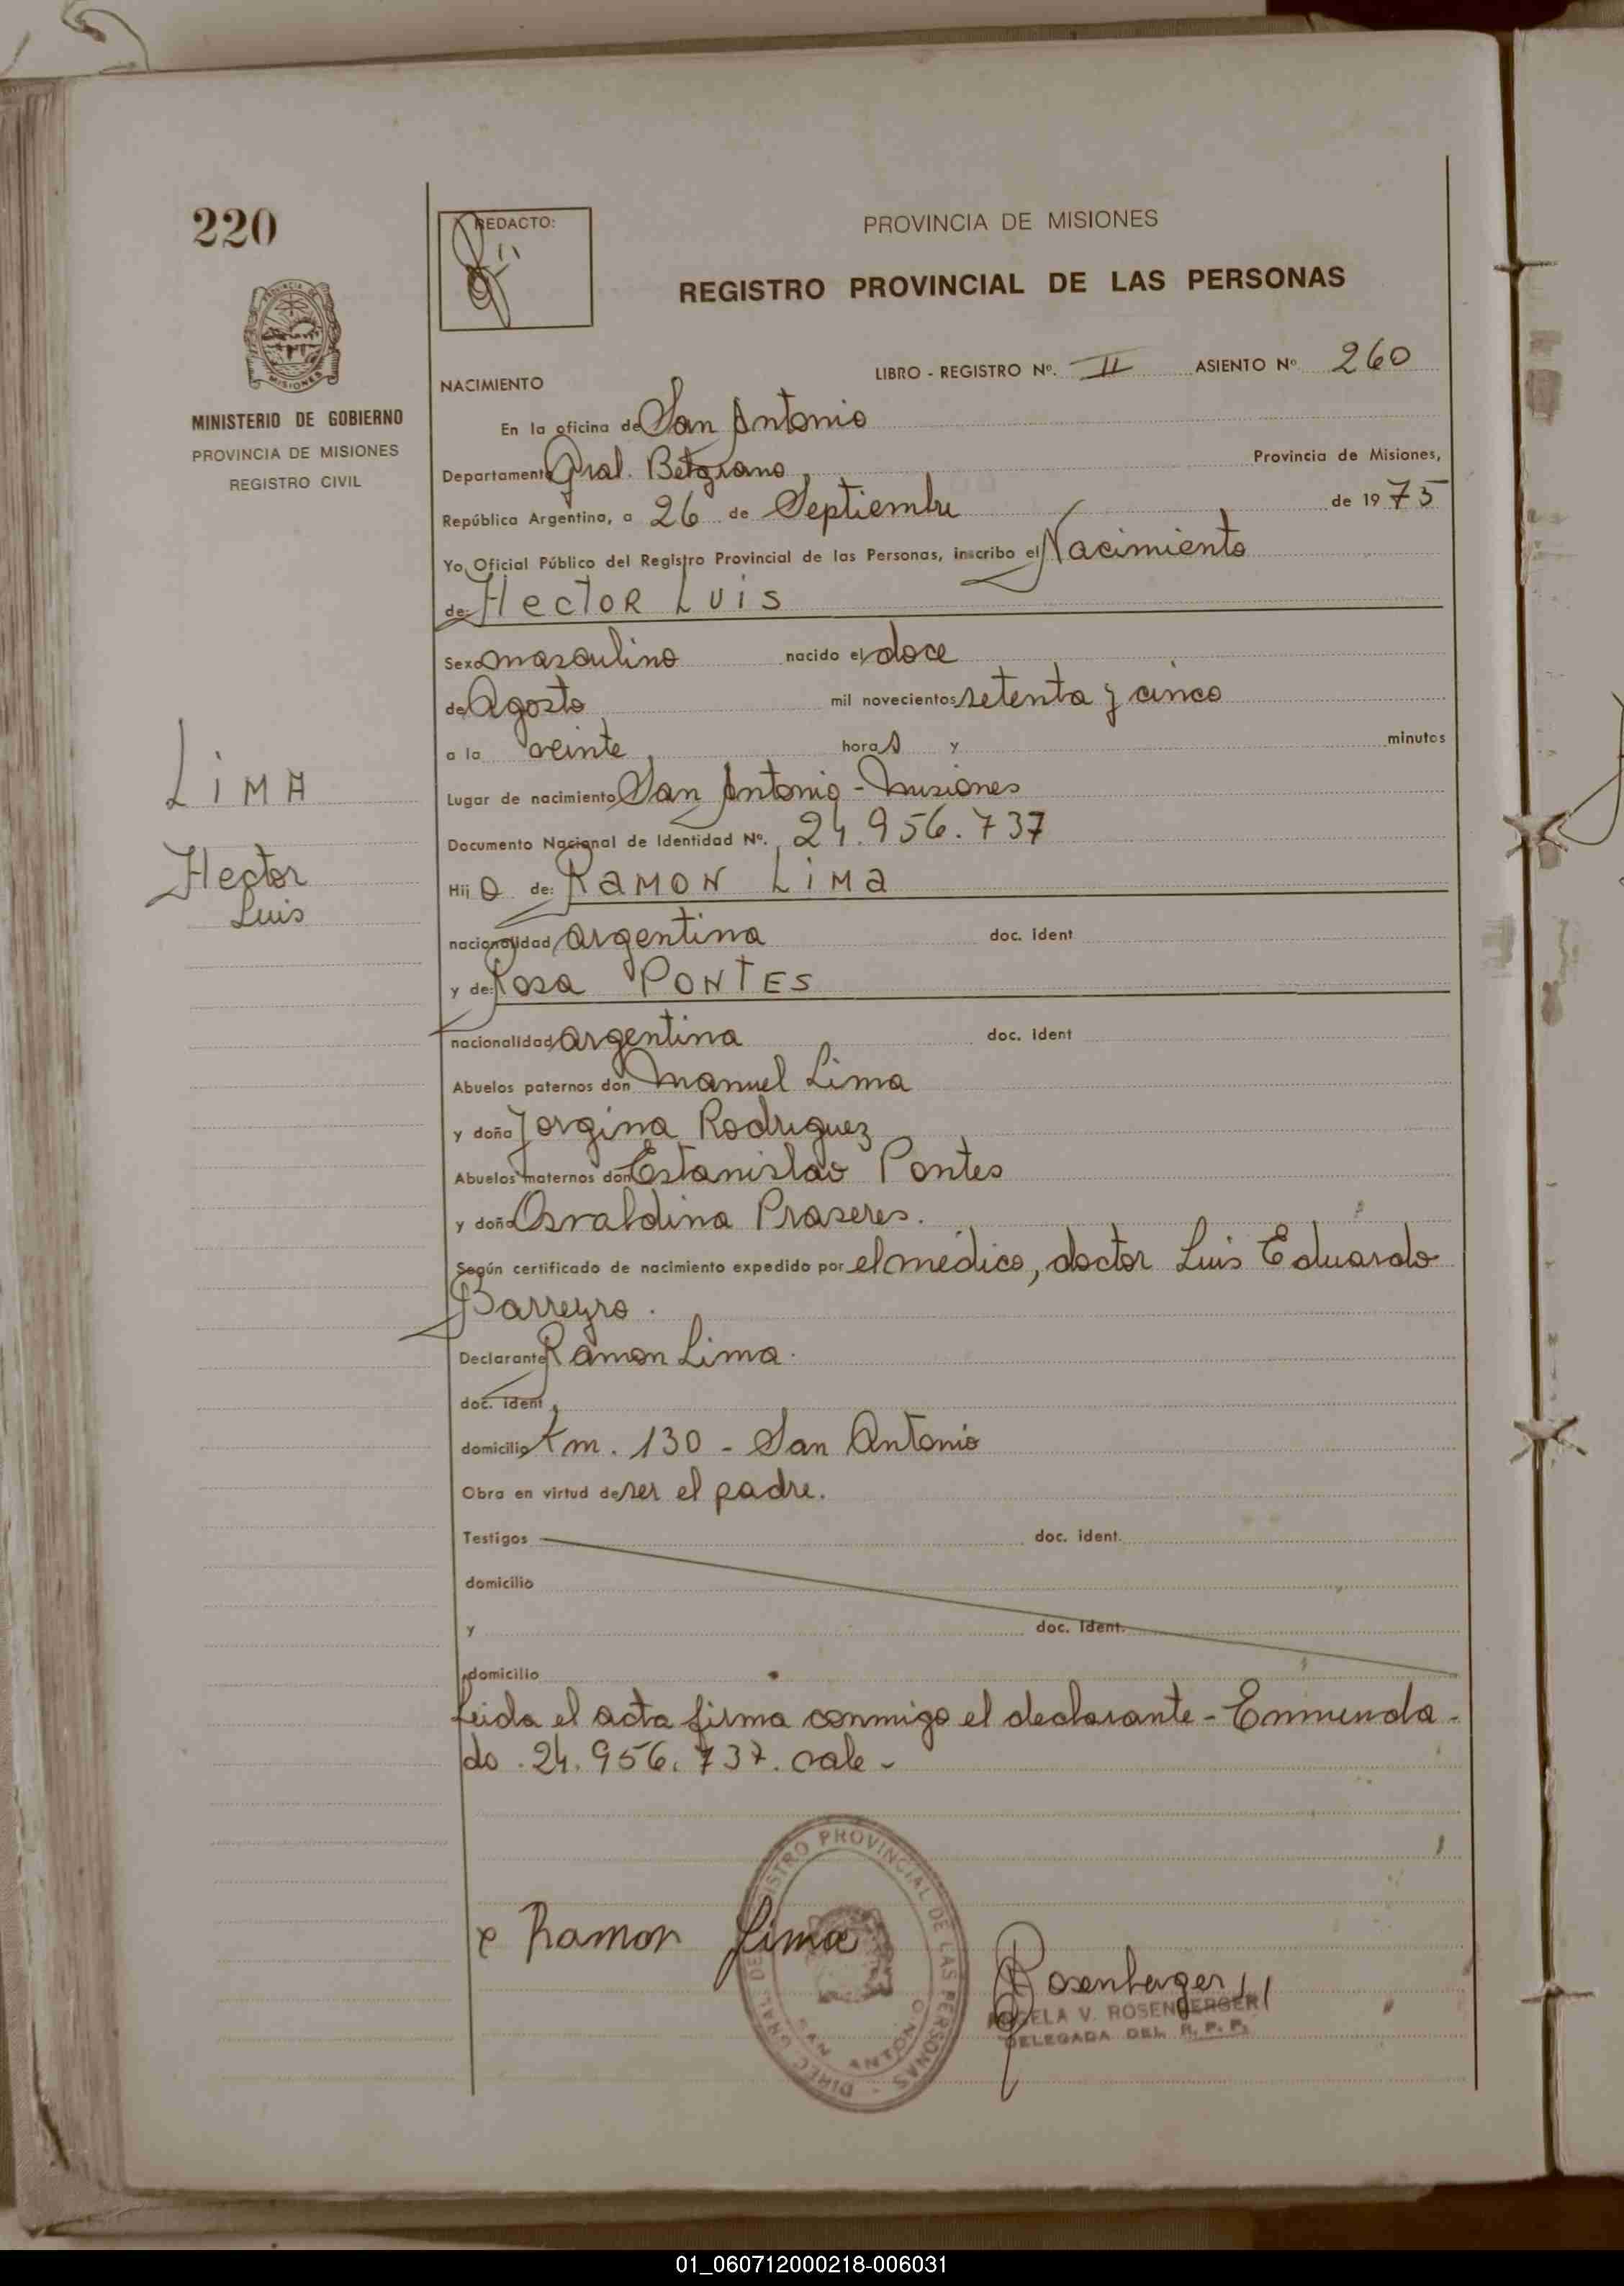 220
PROVINCIA DE MISIONES
MINISTERIO DE GOBIERNO
PROVINCIA DE MISIONES
REGISTRO CIVIL
LIMA
Hector
Luis
REDACTO:
PROVINCIA DE MISIONES
REGISTRO PROVINCIAL DE LAS PERSONAS
NACIMIENTO LIBRO - REGISTRO Nº. II ASIENTO Nº 260
En la oficina de San Antonio
Departamento Gral. Belgrano Provincia de Misiones,
República Argentina, a 26 de Septiembre de 1975
Yo, Oficial Público del Registro Provincial de las Personas, inscribo el Nacimiento
de: Hector Luis
Sexo masculino nacido el doce
de Agosto mil novecientos setenta y cinco
a la veinte horas y minutos
Lugar de nacimiento San Antonio - Misiones
Documento Nacional de Identidad Nº. 24.956.737
Hijo de: Ramon Lima
nacionalidad argentina doc. ident
y de: Rosa PONTES
nacionalidad argentina doc. ident
Abuelos paternos don Manuel Lima
y doña Jorgina Rodriguez
Abuelos maternos don Estanislao Pontes
y doña Osvaldina Praseres.
Según certificado de nacimiento expedido por el médico, doctor Luis Eduardo
Barreyro.
Declarante Ramon Lima.
doc. ident
domicilio Km. 130 - San Antonio
Obra en virtud de ser el padre.
Testigos doc. ident.
domicilio
y doc. ident.
domicilio
Leida el acta firma conmigo el declarante - Enmenda-
do. 24.956.737. vale -
Ramon Lima
REGISTRO PROVINCIAL DE LAS PERSONAS
SAN ANTONIO
Rosenberger
V. ROSENBERGER
DELEGADA DEL R. P. P.
01_060712000218-006031